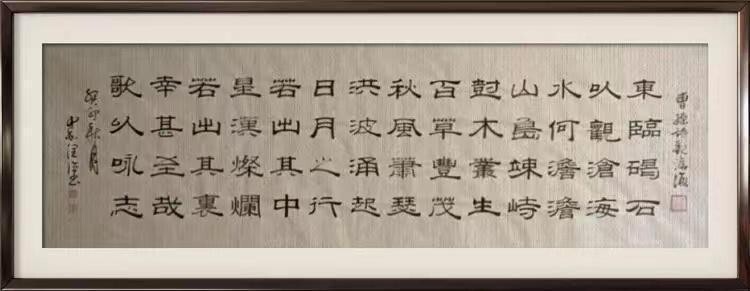 曹操詩觀滄海
東臨碣石
以觀滄海
水何澹澹
山島竦峙
樹木叢生
百草豐茂
秋風蕭瑟
洪波涌起
日月之行
若出其中
星漢燦爛
若出其裏
幸甚至哉
歌以咏志
癸卯秋月